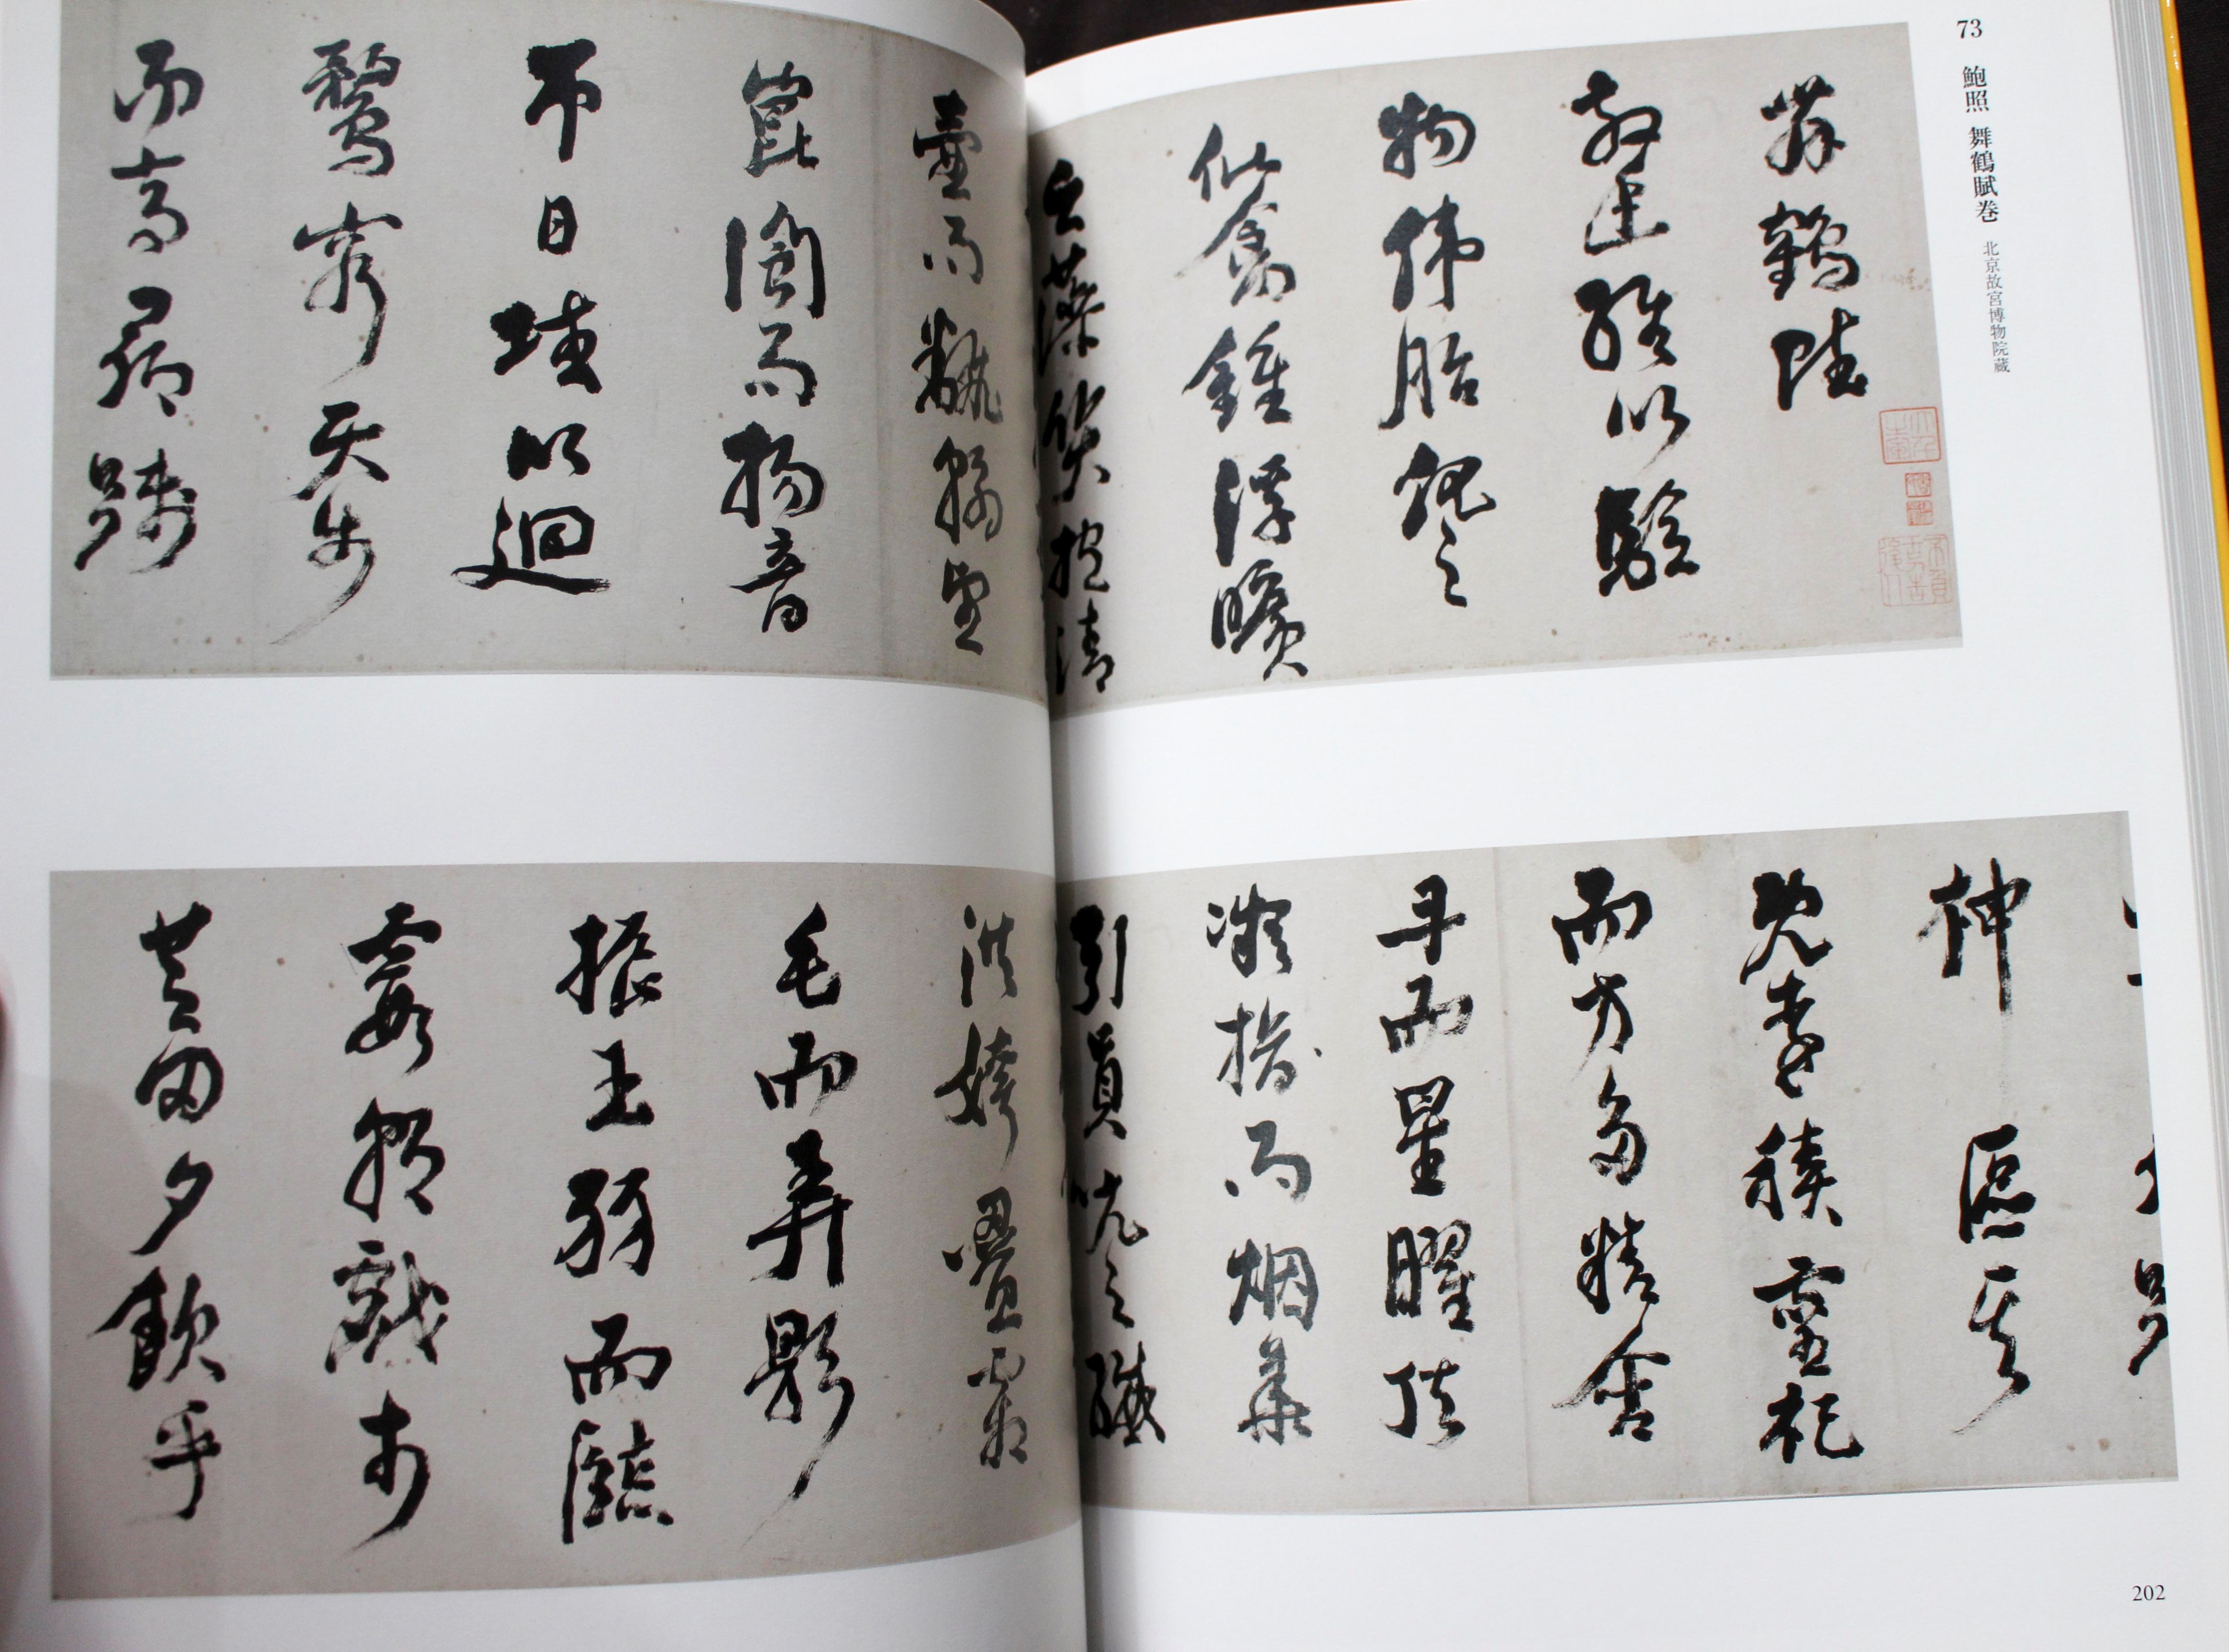 73 鮑照 舞鶴賦巻 北京故宮博物院蔵
舞鶴賦
散幽經以驗
物偉胎化之
仙禽鍾浮曠
之藻質抱清
壺而翻翰望
崑閬而揚音
帀日域以迴
騖窮天步
而高尋踐
神區其
既遠積靈祀
而方多精含
丹而星曜頂
凝紫而烟華
引員吭之纖
洪姱疊霜
毛而弄影
振玉羽而臨
霞朝戲於
芝田夕飲乎
202